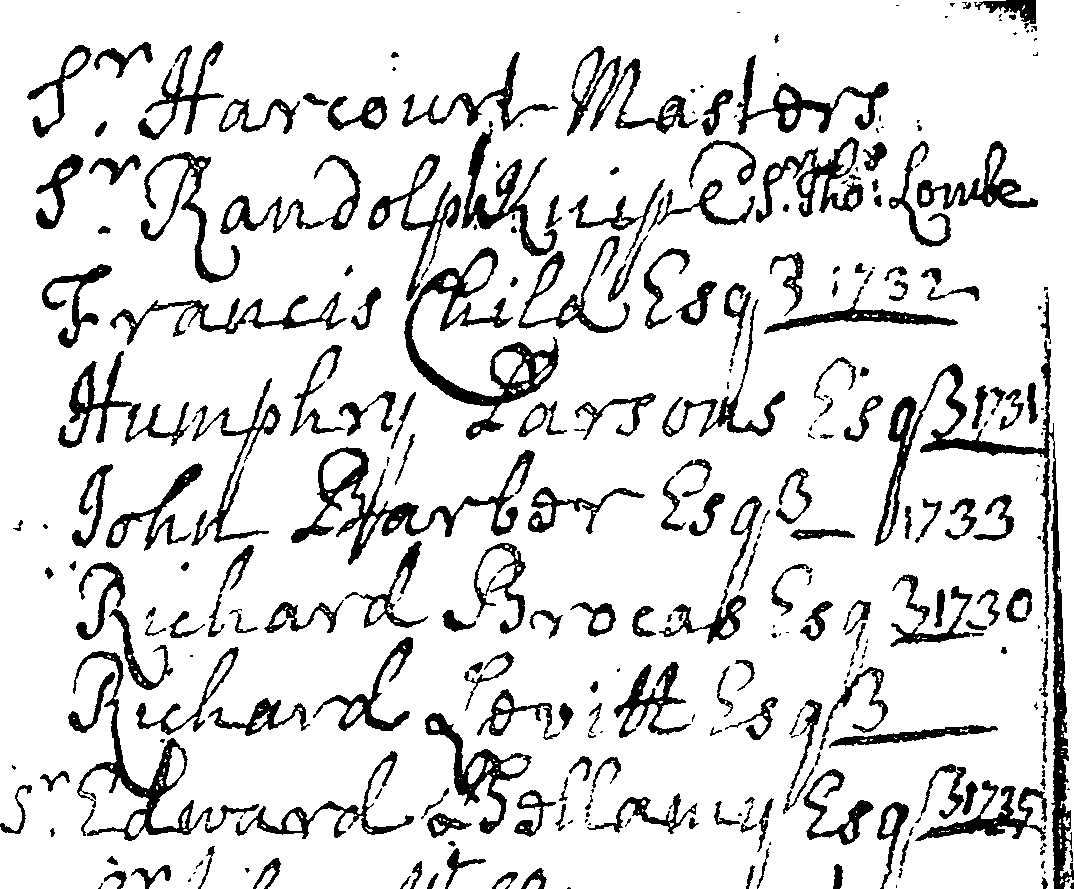 Sr. Harcourt Masters
Sr. Randolph Knip & Sr. Thos: Lombe
Francis Child Esq 1732
Humphry Parsons Esq 1731
John Barber Esq 1733
Richard Brocas Esq 1730
Richard Levitt Esq
Sr. Edward Bellamy Esq 1735